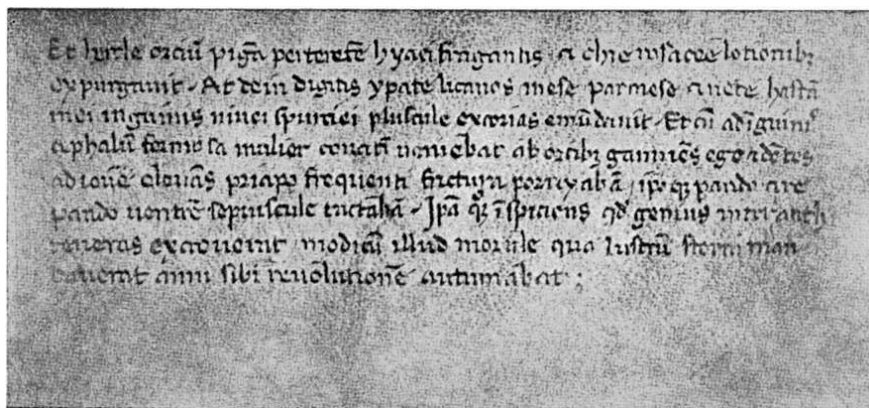 Et hercle orciū pigā perteretē hyaci fragantis ⁊ chie rosacee lotionibꝫ
expurgauit. At dein digitis ypate licanos mese parmese ⁊ nete hastā
mei inguinis niuei spurciei pluscule excorias emūdauit. Et cū ad īguinis
cephalū formosa mulier conatī ueniebat ab orcibꝫ ganniēs ego ⁊ dētes
ad iouē eleuās priapo frequenti frictura porrixabā, ipo qꝫ pando ⁊ re
pando uentrē sepiuscule tactabā. Ipa qꝫ īspiciens qd genius inter anth
teneras excreuerit modicū illud morule qua lustrū sterni man
dauerat anni sibi reuolutionē autumabat;